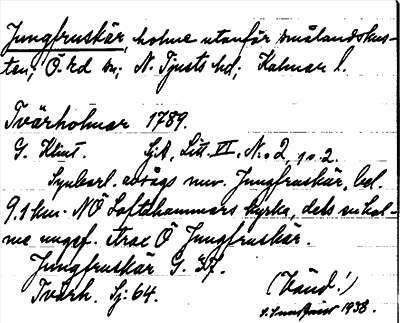 Jungfruskär, holme utanför smålandskus-
ten, Ö. Ed sn; N. Tjusts hd, Kalmar l.
Tvärholmar 1789.
G. Klint. SjA, Litt. VI, N:o 2, 1 o. 2.
Synbarl. avsågs nuv. Jungfruskär, bel.
9.1 km. NÖ Loftahammars kyrka, dels en hol-
me ungef. strax Ö Jungfruskär.
Jungfruskär G. 27.
Tvärh. Sj. 64.
(Vänd!)
1938.